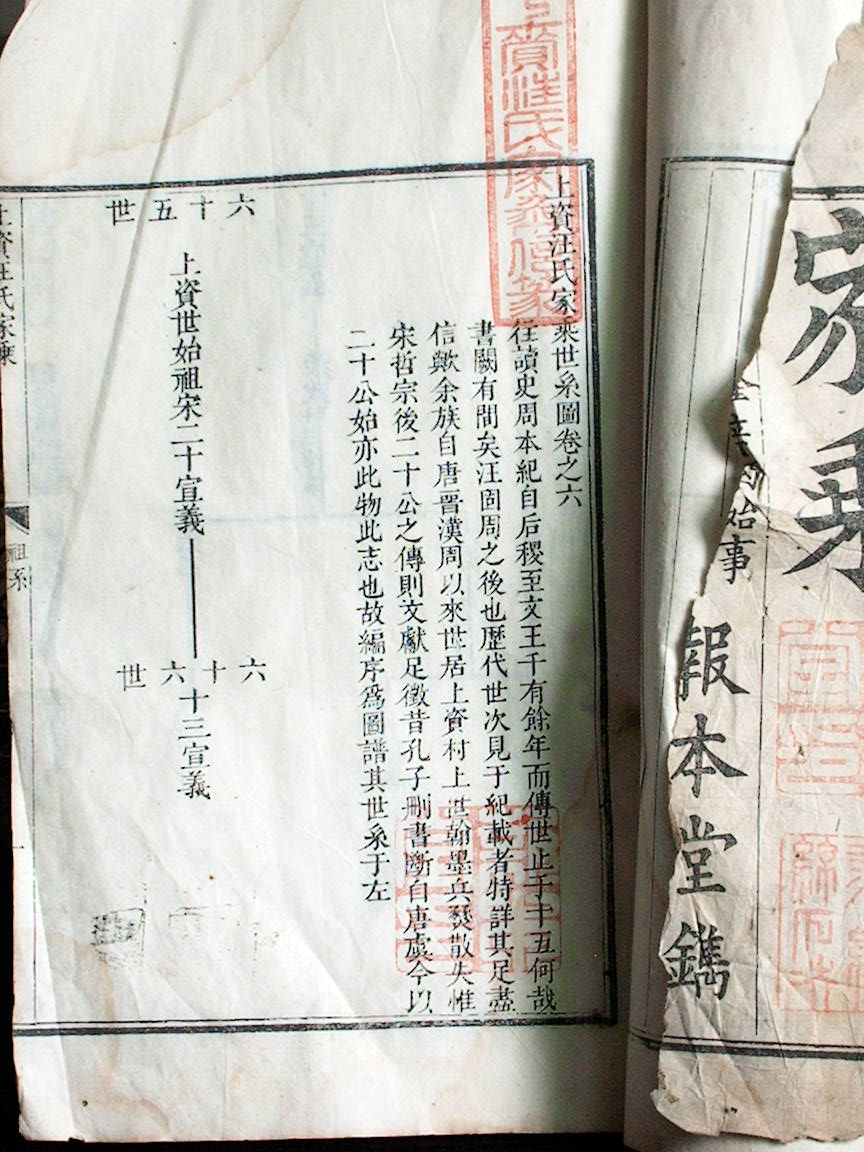 家乘
報本堂鐫
上資汪氏家乘世系圖卷之六
往讀史周本紀自后稷至文王千有餘年而傳世止于十五何哉
書闕有間矣汪固周之後也歷代世次見于紀載者特詳其足盡
信歟余族自唐晋漢周以來世居上資村上世翰墨兵燹散失惟
宋哲宗後二十公之傳則文獻足徵昔孔子刪書斷自唐虞今以
二十公始亦此物此志也故編序為圖譜其世系于左
六十五世
上資世始祖宋二十宣義
六十六世
十三宣義
上資汪氏家乘
祖系